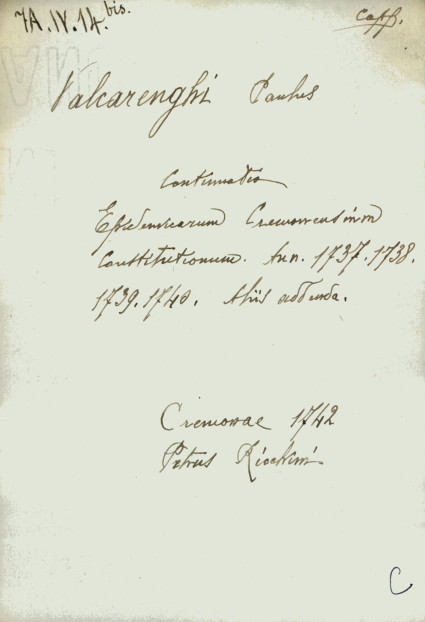 7A.IV.14.bis.
caps.
Valcarenghi Paulus
Continuatio
Epidemicarum Cremonensium
Constitutionum. Ann. 1737.1738.
1739.1740. Aliis addenda.
Cremonae 1742
Petrus Ricchini
C